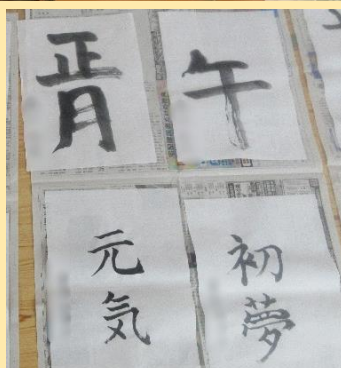 正月
午
元気
初夢